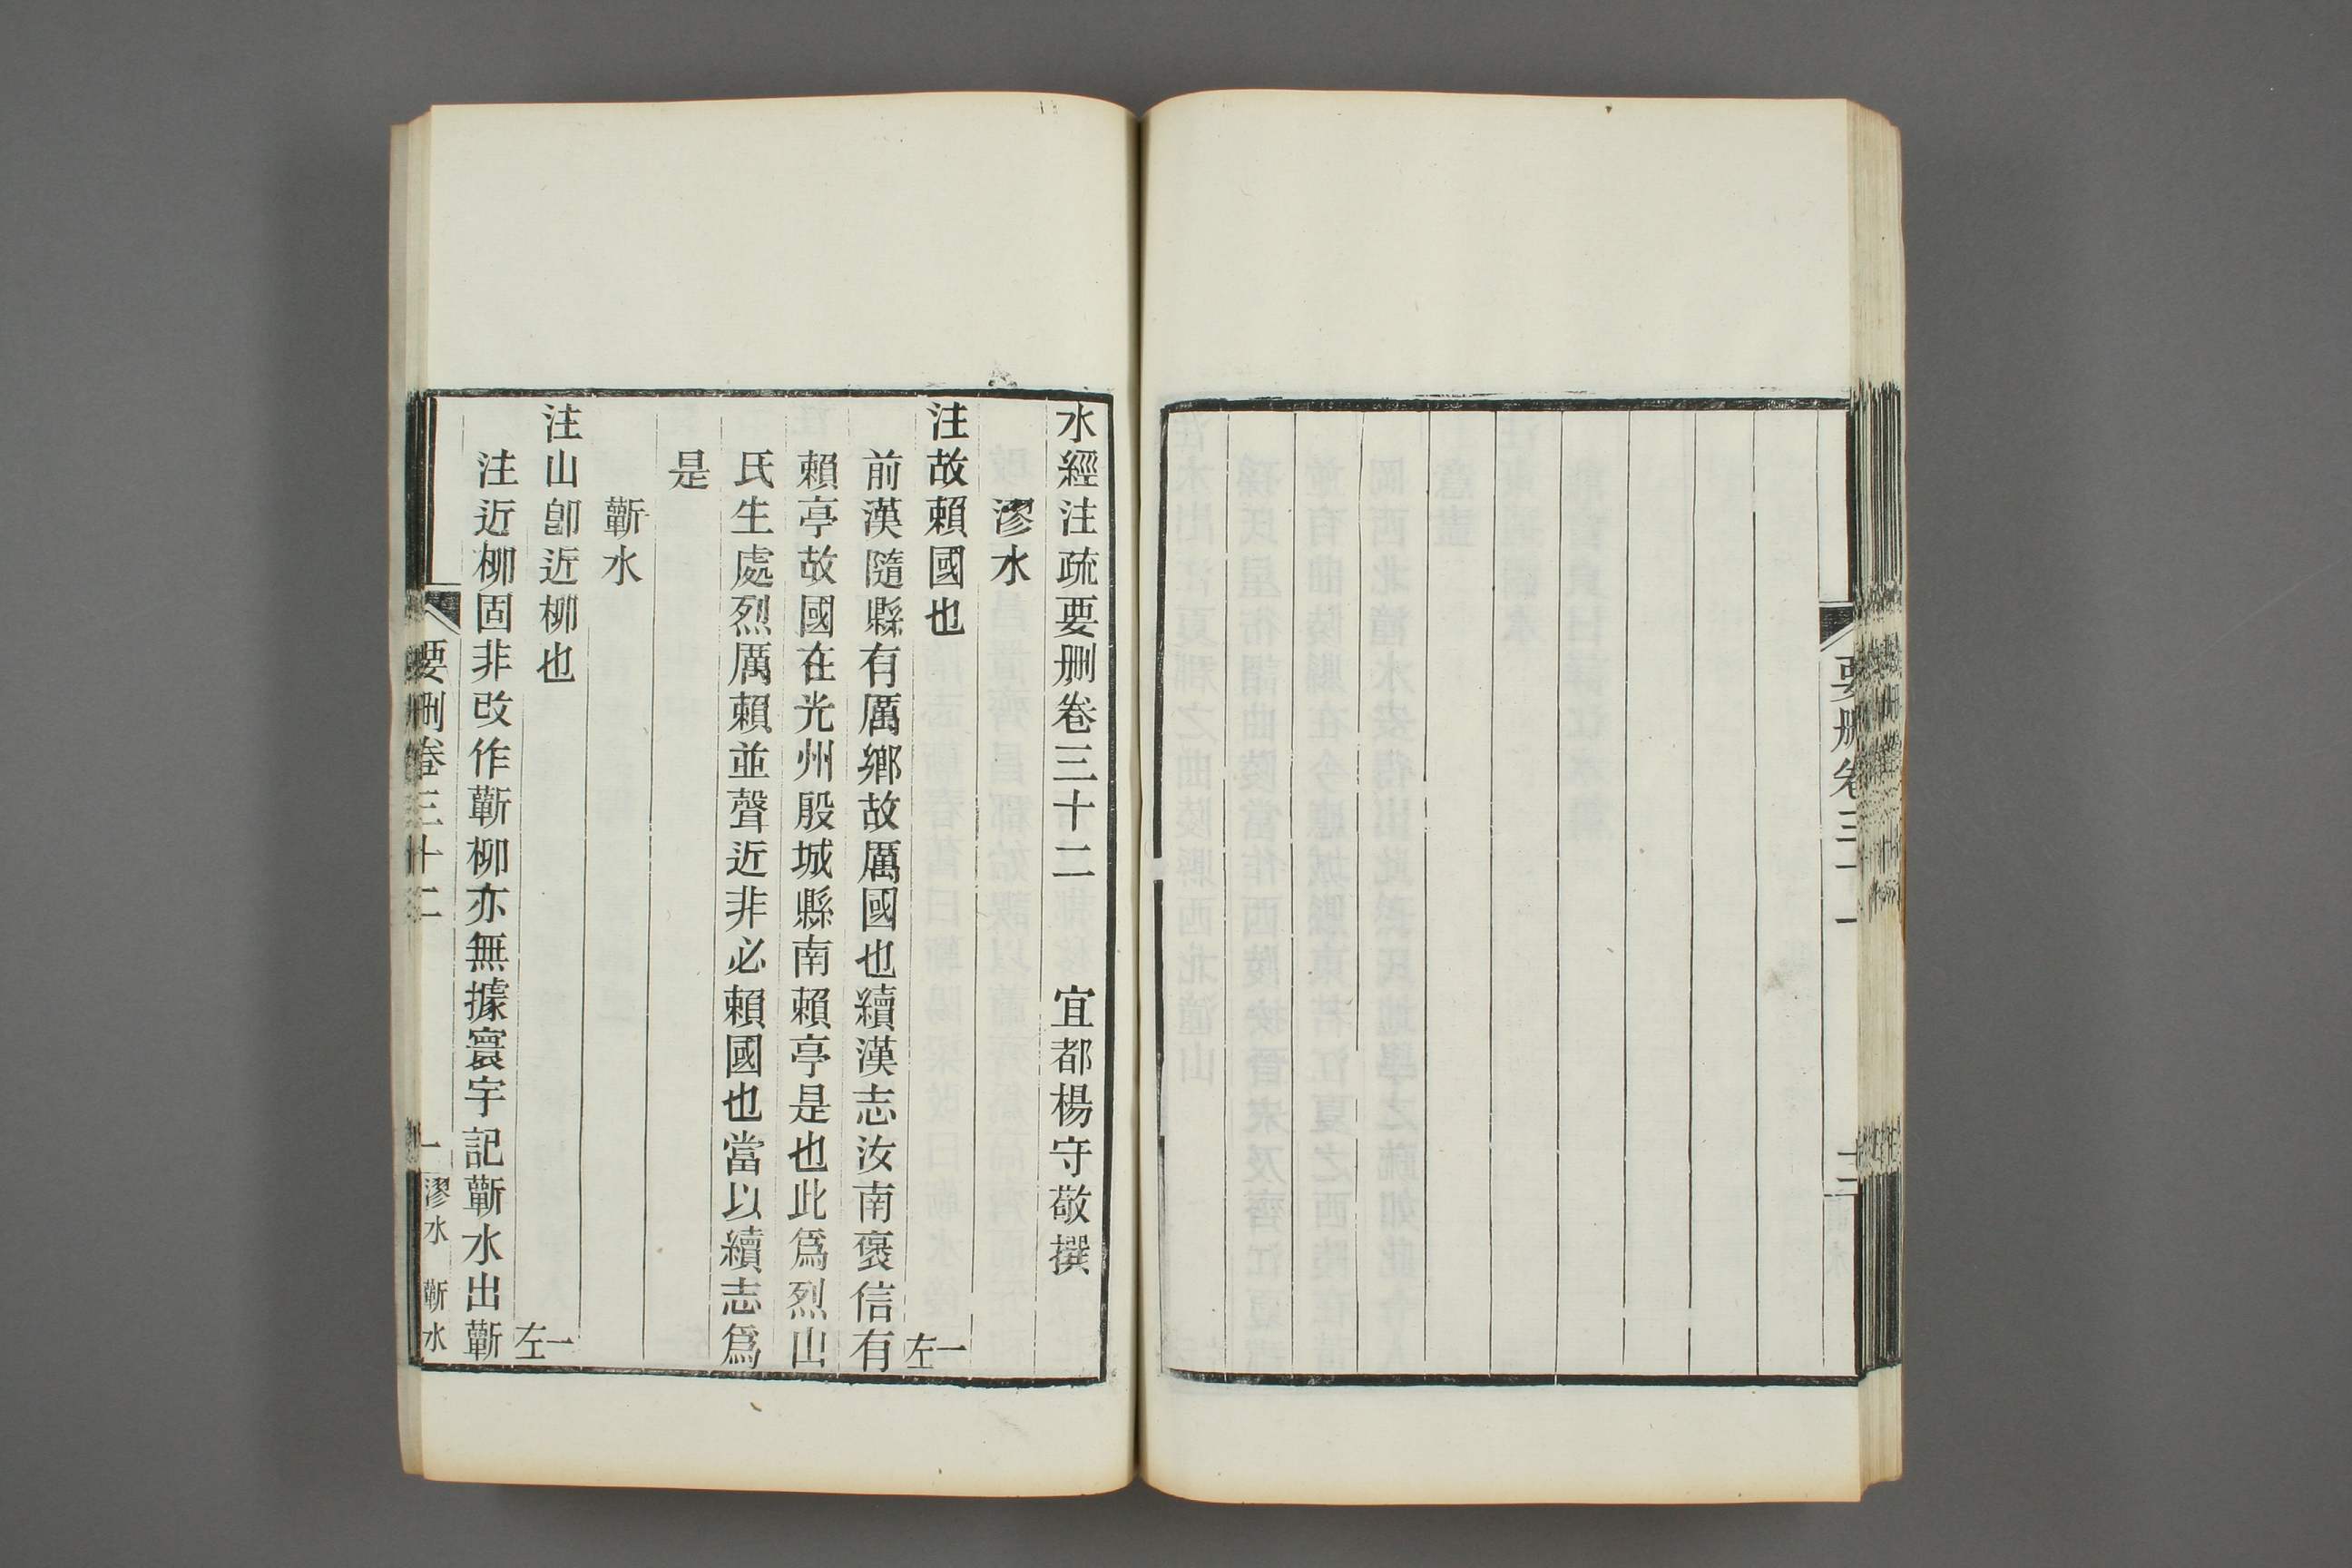 要刪卷三十一
水經注疏要刪卷三十二 宜都楊守敬撰
漻水
注故賴國也 一左
前漢隨縣有厲鄉故厲國也續漢志汝南褒信有
賴亭故國在光州殷城縣南賴亭是也此爲烈山
氏生處烈厲賴並聲近非必賴國也當以續志爲
是
蘄水
注山卽近柳也 一左
注近柳固非改作蘄柳亦無據寰宇記蘄水出蘄
要刪卷三十二 一 漻水 蘄水